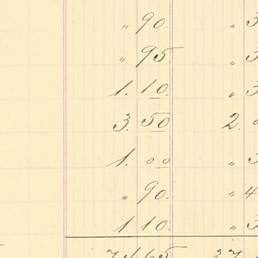 " 90. " 3
" 95. " 3
1. 10. " 3
3. 50 2.
1. 00 " 3
" 90. " 4
1. 10. " 3